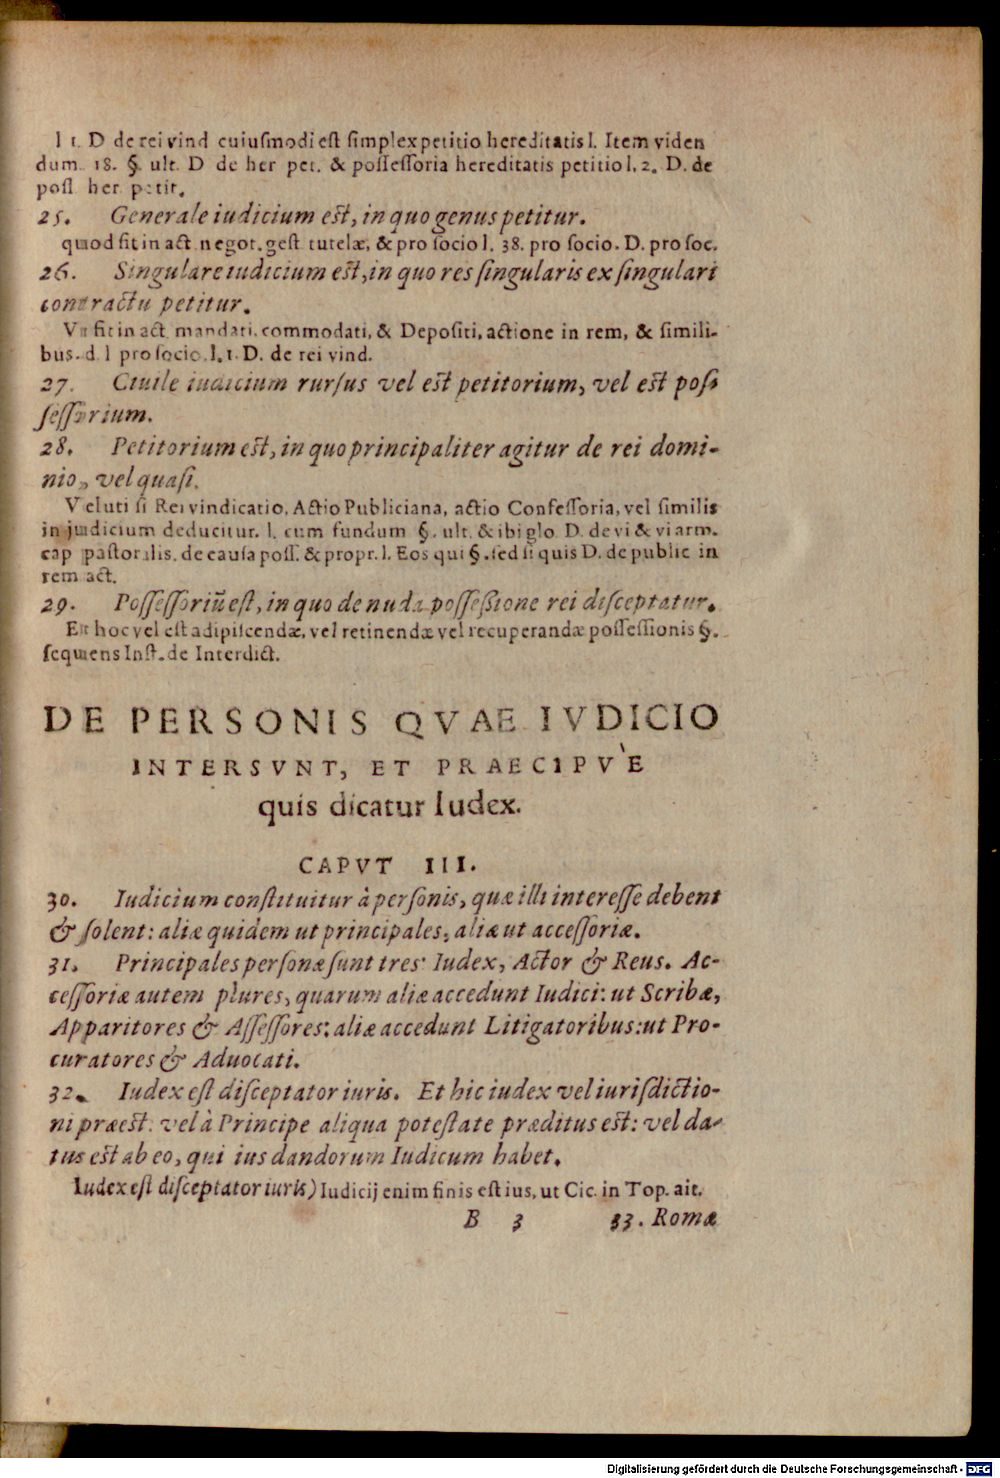 l 1. D de rei vind cuiusmodi est simplex petitio hereditatis l. Item viden
dum. 18. §. ult. D de her pet. & possessoria hereditatis petitio l. 2. D. de
poss her petit.
25. Generale iudicium est, in quo genus petitur.
quod fit in act negot. gest tutelæ, & pro socio l. 38. pro socio. D. pro soc.
26. Singulare iudicium est, in quo res singularis ex singulari
contractu petitur.
Vt fit in act mandati, commodati, & Depositi, actione in rem, & simili-
bus. d. l pro socio. l. 1. D. de rei vind.
27. Ciuile iudicium rursus vel est petitorium, vel est pos
sessorium.
28. Petitorium est, in quo principaliter agitur de rei domi-
nio, vel quasi.
Veluti si Rei vindicatio, Actio Publiciana, actio Confessoria, vel similis
in judicium deducitur. l. cum fundum §. ult. & ibi glo D. de vi & vi arm.
cap pastoralis. de causa poss. & propr. l. Eos qui §. sed si quis D. de public in
rem act.
29. Possessoriũ est, in quo de nuda possessione rei disceptatur.
Et hoc vel est adipiscendæ, vel retinendæ vel recuperandæ possessionis §.
sequens Inst. de Interdict.
DE PERSONIS QVAE IVDICIO
INTERSVNT, ET PRAECIPVÈ
quis dicatur Iudex.
CAPVT III.
30. Iudicium constituitur à personis, quæ illi interesse debent
& solent: aliæ quidem ut principales, aliæ ut accessoriæ.
31. Principales personæ sunt tres: Iudex, Actor & Reus. Ac-
cessoriæ autem plures, quarum aliæ accedunt Iudici: ut Scribæ,
Apparitores & Assessores: aliæ accedunt Litigatoribus: ut Pro-
curatores & Aduocati.
32. Iudex est disceptator iuris. Et hic iudex vel iurisdictio-
ni præest: vel à Principe aliqua potestate præditus est: vel da-
tus est ab eo, qui ius dandorum Iudicum habet.
Iudex est disceptator iuris) Iudicij enim finis est ius, ut Cic. in Top. ait.
B 3 33. Romæ
Digitalisierung gefördert durch die Deutsche Forschungsgemeinschaft - DFG